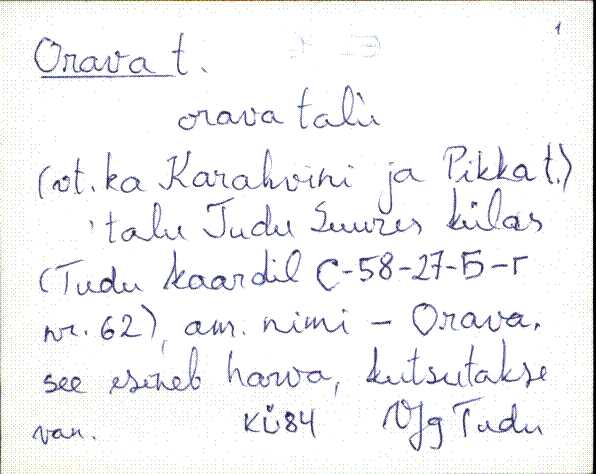 1
Orava t.
orava talu
(vt. ka Karahvini ja Pikka t.)
'talu Tudu Suures külas
(Tudu kaardil C-58-27-Б-Г
nr. 62), am. nimi – Orava.
see esineb harva, kutsutakse
van. KÜ84 VJg Tudu